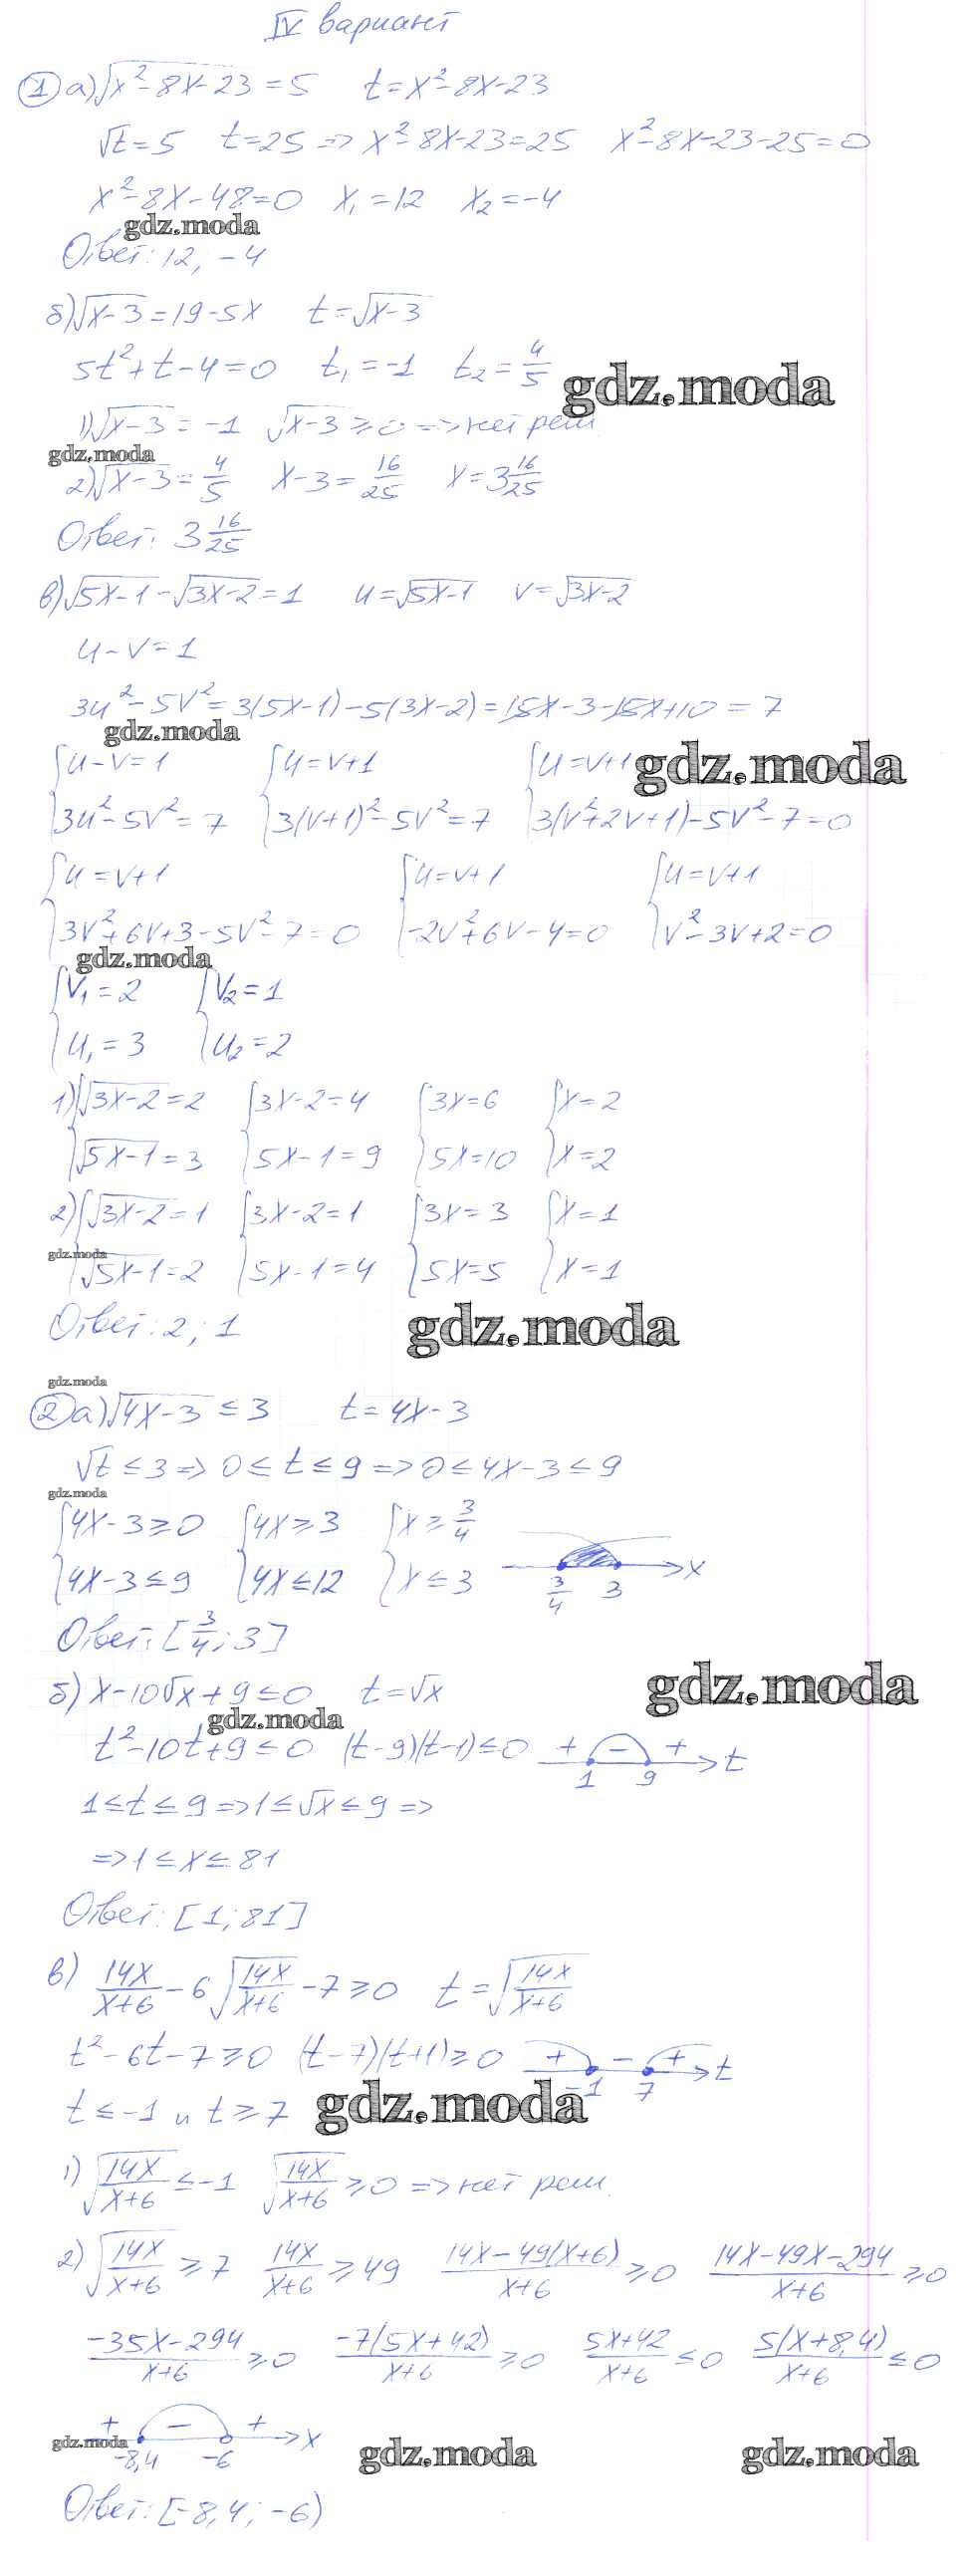 IV вариант
① а) √(x²-8x-23) = 5   t = x²-8x-23
√t = 5   t = 25 => x²-8x-23 = 25   x²-8x-23-25 = 0
x²-8x-48 = 0   x₁ = 12   x₂ = -4
gdz.moda
Ответ: 12, -4
б) √(x-3) = 19-5x   t = √(x-3)
5t²+t-4 = 0   t₁ = -1   t₂ = 4/5
gdz.moda
1) √(x-3) = -1   √(x-3) ≥ 0 => нет реш.
gdz.moda
2) √(x-3) = 4/5   x-3 = 16/25   x = 3 16/25
Ответ: 3 16/25
в) √(5x-1) - √(3x-2) = 1   u = √(5x-1)   v = √(3x-2)
u-v = 1
3u²-5v² = 3(5x-1)-5(3x-2) = 15x-3-15x+10 = 7
gdz.moda
{u-v = 1   {u = v+1   {u = v+1
gdz.moda
{3u²-5v² = 7   {3(v+1)²-5v² = 7   {3(v²+2v+1)-5v²-7 = 0
{u = v+1   {u = v+1   {u = v+1
{3v²+6v+3-5v²-7 = 0   {-2v²+6v-4 = 0   {v²-3v+2 = 0
gdz.moda
{v₁ = 2   {v₂ = 1
{u₁ = 3   {u₂ = 2
1) {√(3x-2) = 2   {3x-2 = 4   {3x = 6   {x = 2
{√(5x-1) = 3   {5x-1 = 9   {5x = 10   {x = 2
2) {√(3x-2) = 1   {3x-2 = 1   {3x = 3   {x = 1
gdz.moda
{√(5x-1) = 2   {5x-1 = 4   {5x = 5   {x = 1
Ответ: 2; 1
gdz.moda
gdz.moda
② а) √(4x-3) ≤ 3   t = 4x-3
√t ≤ 3 => 0 ≤ t ≤ 9 => 0 ≤ 4x-3 ≤ 9
gdz.moda
{4x-3 ≥ 0   {4x ≥ 3   {x ≥ 3/4
{4x-3 ≤ 9   {4x ≤ 12   {x ≤ 3   3/4   3   x
Ответ: [3/4; 3]
б) x-10√x+9 ≤ 0   t = √x
gdz.moda
gdz.moda
t²-10t+9 ≤ 0   (t-9)(t-1) ≤ 0   + - +   1   9   t
1 ≤ t ≤ 9 => 1 ≤ √x ≤ 9 =>
=> 1 ≤ x ≤ 81
Ответ: [1; 81]
в) 14x/(x+6) - 6√(14x/(x+6)) - 7 ≥ 0   t = √(14x/(x+6))
t²-6t-7 ≥ 0   (t-7)(t+1) ≥ 0   + - +   -1   7   t
t ≤ -1 и t ≥ 7
gdz.moda
1) √(14x/(x+6)) ≤ -1   √(14x/(x+6)) ≥ 0 => нет реш.
2) √(14x/(x+6)) ≥ 7   14x/(x+6) ≥ 49   (14x-49(x+6))/(x+6) ≥ 0   (14x-49x-294)/(x+6) ≥ 0
(-35x-294)/(x+6) ≥ 0   -7(5x+42)/(x+6) ≥ 0   (5x+42)/(x+6) ≤ 0   5(x+8,4)/(x+6) ≤ 0
+ - +   -8,4   -6   x
gdz.moda
gdz.moda
gdz.moda
Ответ: [-8,4; -6)